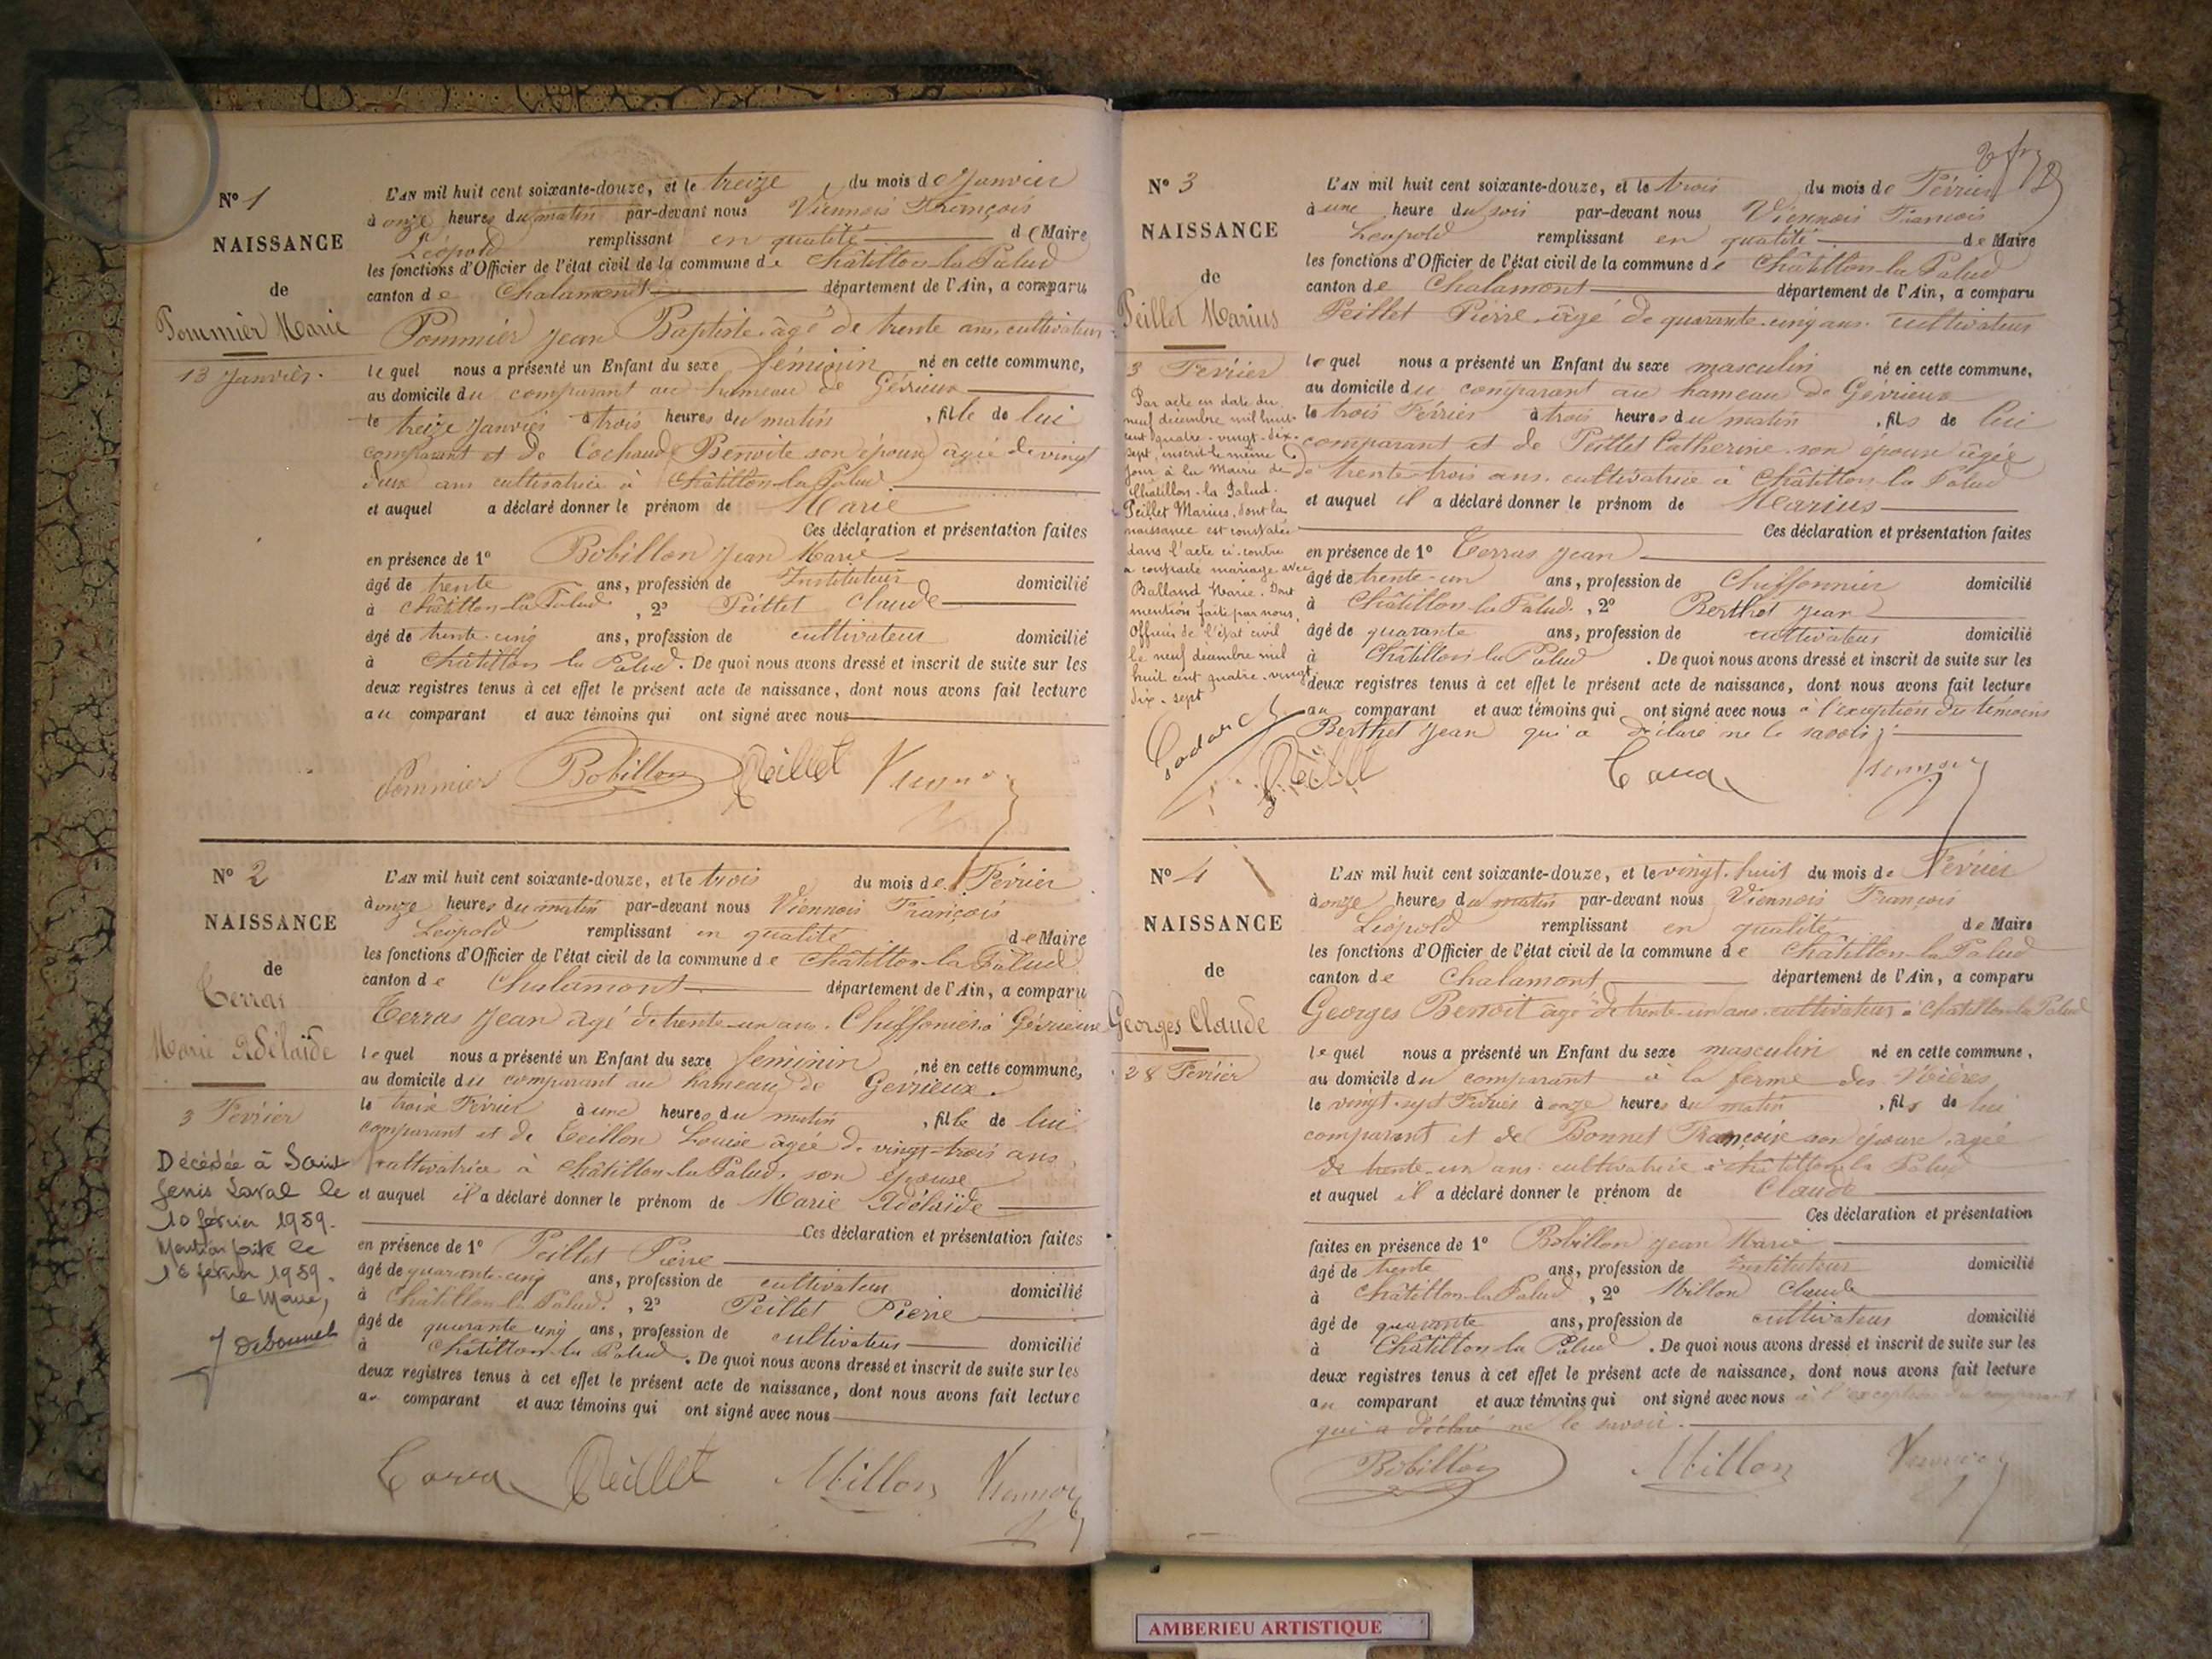 N° 1
NAISSANCE
de
Pommier Marie
13 Janvier.
L'AN mil huit cent soixante-douze, et le treize du mois de Janvier
à onze heures du matin par-devant nous Viennois François
Léopold remplissant en qualité de Maire
les fonctions d'Officier de l'état civil de la commune de Châtillon-la-Palud
canton de Chalamont département de l'Ain, a comparu
Pommier Jean Baptiste âgé de trente ans cultivateur
lequel nous a présenté un Enfant du sexe féminin né en cette commune,
au domicile du comparant au hameau de Gévrieux
le treize Janvier à trois heures du matin, fille de lui
comparant et de Cochaud Benoite son épouse agée de vingt
deux ans cultivatrice à Châtillon-la-Palud
et auquel a déclaré donner le prénom de Marie
Ces déclaration et présentation faites
en présence de 1° Bobillon Jean Marie
âgé de trente ans, profession de Instituteur domicilié
à Châtillon-la-Palud, 2° Peillet Claude
âgé de trente-cinq ans, profession de cultivateur domicilié
à Châtillon la Palud. De quoi nous avons dressé et inscrit de suite sur les
deux registres tenus à cet effet le présent acte de naissance, dont nous avons fait lecture
au comparant et aux témoins qui ont signé avec nous
Pommier Bobillon Peillet Viennois
N° 2
NAISSANCE
de
Terras
Marie Adélaïde
3 Février
Décédée à Saint
Genis Laval le
10 février 1959.
Mention faite le
16 février 1959.
Le Maire,
L'AN mil huit cent soixante-douze, et le trois du mois de Février
à onze heures du matin par-devant nous Viennois François
Léopold remplissant en qualité de Maire
les fonctions d'Officier de l'état civil de la commune de Châtillon-la-Palud
canton de Chalamont département de l'Ain, a comparu
Terras Jean âgé de trente-un ans. Chiffonier à Gévrieux
lequel nous a présenté un Enfant du sexe féminin né en cette commune,
au domicile du comparant au hameau de Gevrieux.
le trois Février à une heures du matin, fille de lui
comparant et de Teillon Louise âgée de vingt-trois ans
cultivatrice à Châtillon-la-Palud, son épouse
et auquel il a déclaré donner le prénom de Marie Adélaïde
Ces déclaration et présentation faites
en présence de 1° Peillet Pierre
âgé de quarante-cinq ans, profession de cultivateur domicilié
à Châtillon-la-Palud, 2° Peillet Pierre
âgé de quarante cinq ans, profession de cultivateur domicilié
à Châtillon-la-Palud. De quoi nous avons dressé et inscrit de suite sur les
deux registres tenus à cet effet le présent acte de naissance, dont nous avons fait lecture
au comparant et aux témoins qui ont signé avec nous
Peillet Millon Viennois
N° 3
NAISSANCE
de
Peillet Marius
3 Février
Par acte en date du
neuf décembre mil huit
cent quatre-vingt-dix-
sept, inscrit le même
jour à la Mairie de
Châtillon-la-Palud.
Peillet Marius, dont la
naissance est constatée
dans l'acte ci-contre
a contracté mariage avec
Balland Marie. Dont
mention faite par nous,
Officier de l'état civil
le neuf décembre mil
huit cent quatre-vingt
dix-sept
L'AN mil huit cent soixante-douze, et le trois du mois de Février
à une heure du soir par-devant nous Viennois François
Léopold remplissant en qualité de Maire
les fonctions d'Officier de l'état civil de la commune de Châtillon-la-Palud
canton de Chalamont département de l'Ain, a comparu
Peillet Pierre âgé de quarante-cinq ans. cultivateur
lequel nous a présenté un Enfant du sexe masculin né en cette commune,
au domicile du comparant au hameau de Gévrieux
le trois Février à trois heures du matin, fils de lui
comparant et de Peillet Catherine son épouse âgée
de trente-trois ans. cultivatrice à Châtillon-la-Palud
et auquel il a déclaré donner le prénom de Marius
Ces déclaration et présentation faites
en présence de 1° Terras Jean
âgé de trente-un ans, profession de Chiffonnier domicilié
à Châtillon-la-Palud, 2° Berthet Jean
âgé de quarante ans, profession de cultivateur domicilié
à Châtillon-la-Palud. De quoi nous avons dressé et inscrit de suite sur les
deux registres tenus à cet effet le présent acte de naissance, dont nous avons fait lecture
au comparant et aux témoins qui ont signé avec nous à l'exception du témoins
Berthet Jean qui a déclaré ne le savoir.
N° 4
NAISSANCE
de
Georges Claude
28 Février
L'AN mil huit cent soixante-douze, et le vingt-huit du mois de Février
à onze heures du matin par-devant nous Viennois François
Léopold remplissant en qualité de Maire
les fonctions d'Officier de l'état civil de la commune de Châtillon-la-Palud
canton de Chalamont département de l'Ain, a comparu
Georges Benoit âgé de trente-un ans. cultivateur à Châtillon-la-Palud
lequel nous a présenté un Enfant du sexe masculin né en cette commune,
au domicile du comparant à la ferme des
le vingt-sept Février à onze heures du matin, fils de lui
comparant et de Bonnet Françoise son épouse agée
de trente-un ans. cultivatrice à Châtillon-la-Palud
et auquel il a déclaré donner le prénom de Claude
Ces déclaration et présentation
faites en présence de 1° Bobillon Jean Marie
âgé de trente ans, profession de Instituteur domicilié
à Châtillon-la-Palud, 2° Millon Claude
âgé de quarante ans, profession de cultivateur domicilié
à Châtillon-la-Palud. De quoi nous avons dressé et inscrit de suite sur les
deux registres tenus à cet effet le présent acte de naissance, dont nous avons fait lecture
au comparant et aux témoins qui ont signé avec nous à l'exception du comparant
qui a déclaré ne le savoir.
Bobillon Millon Viennois
AMBERIEU ARTISTIQUE